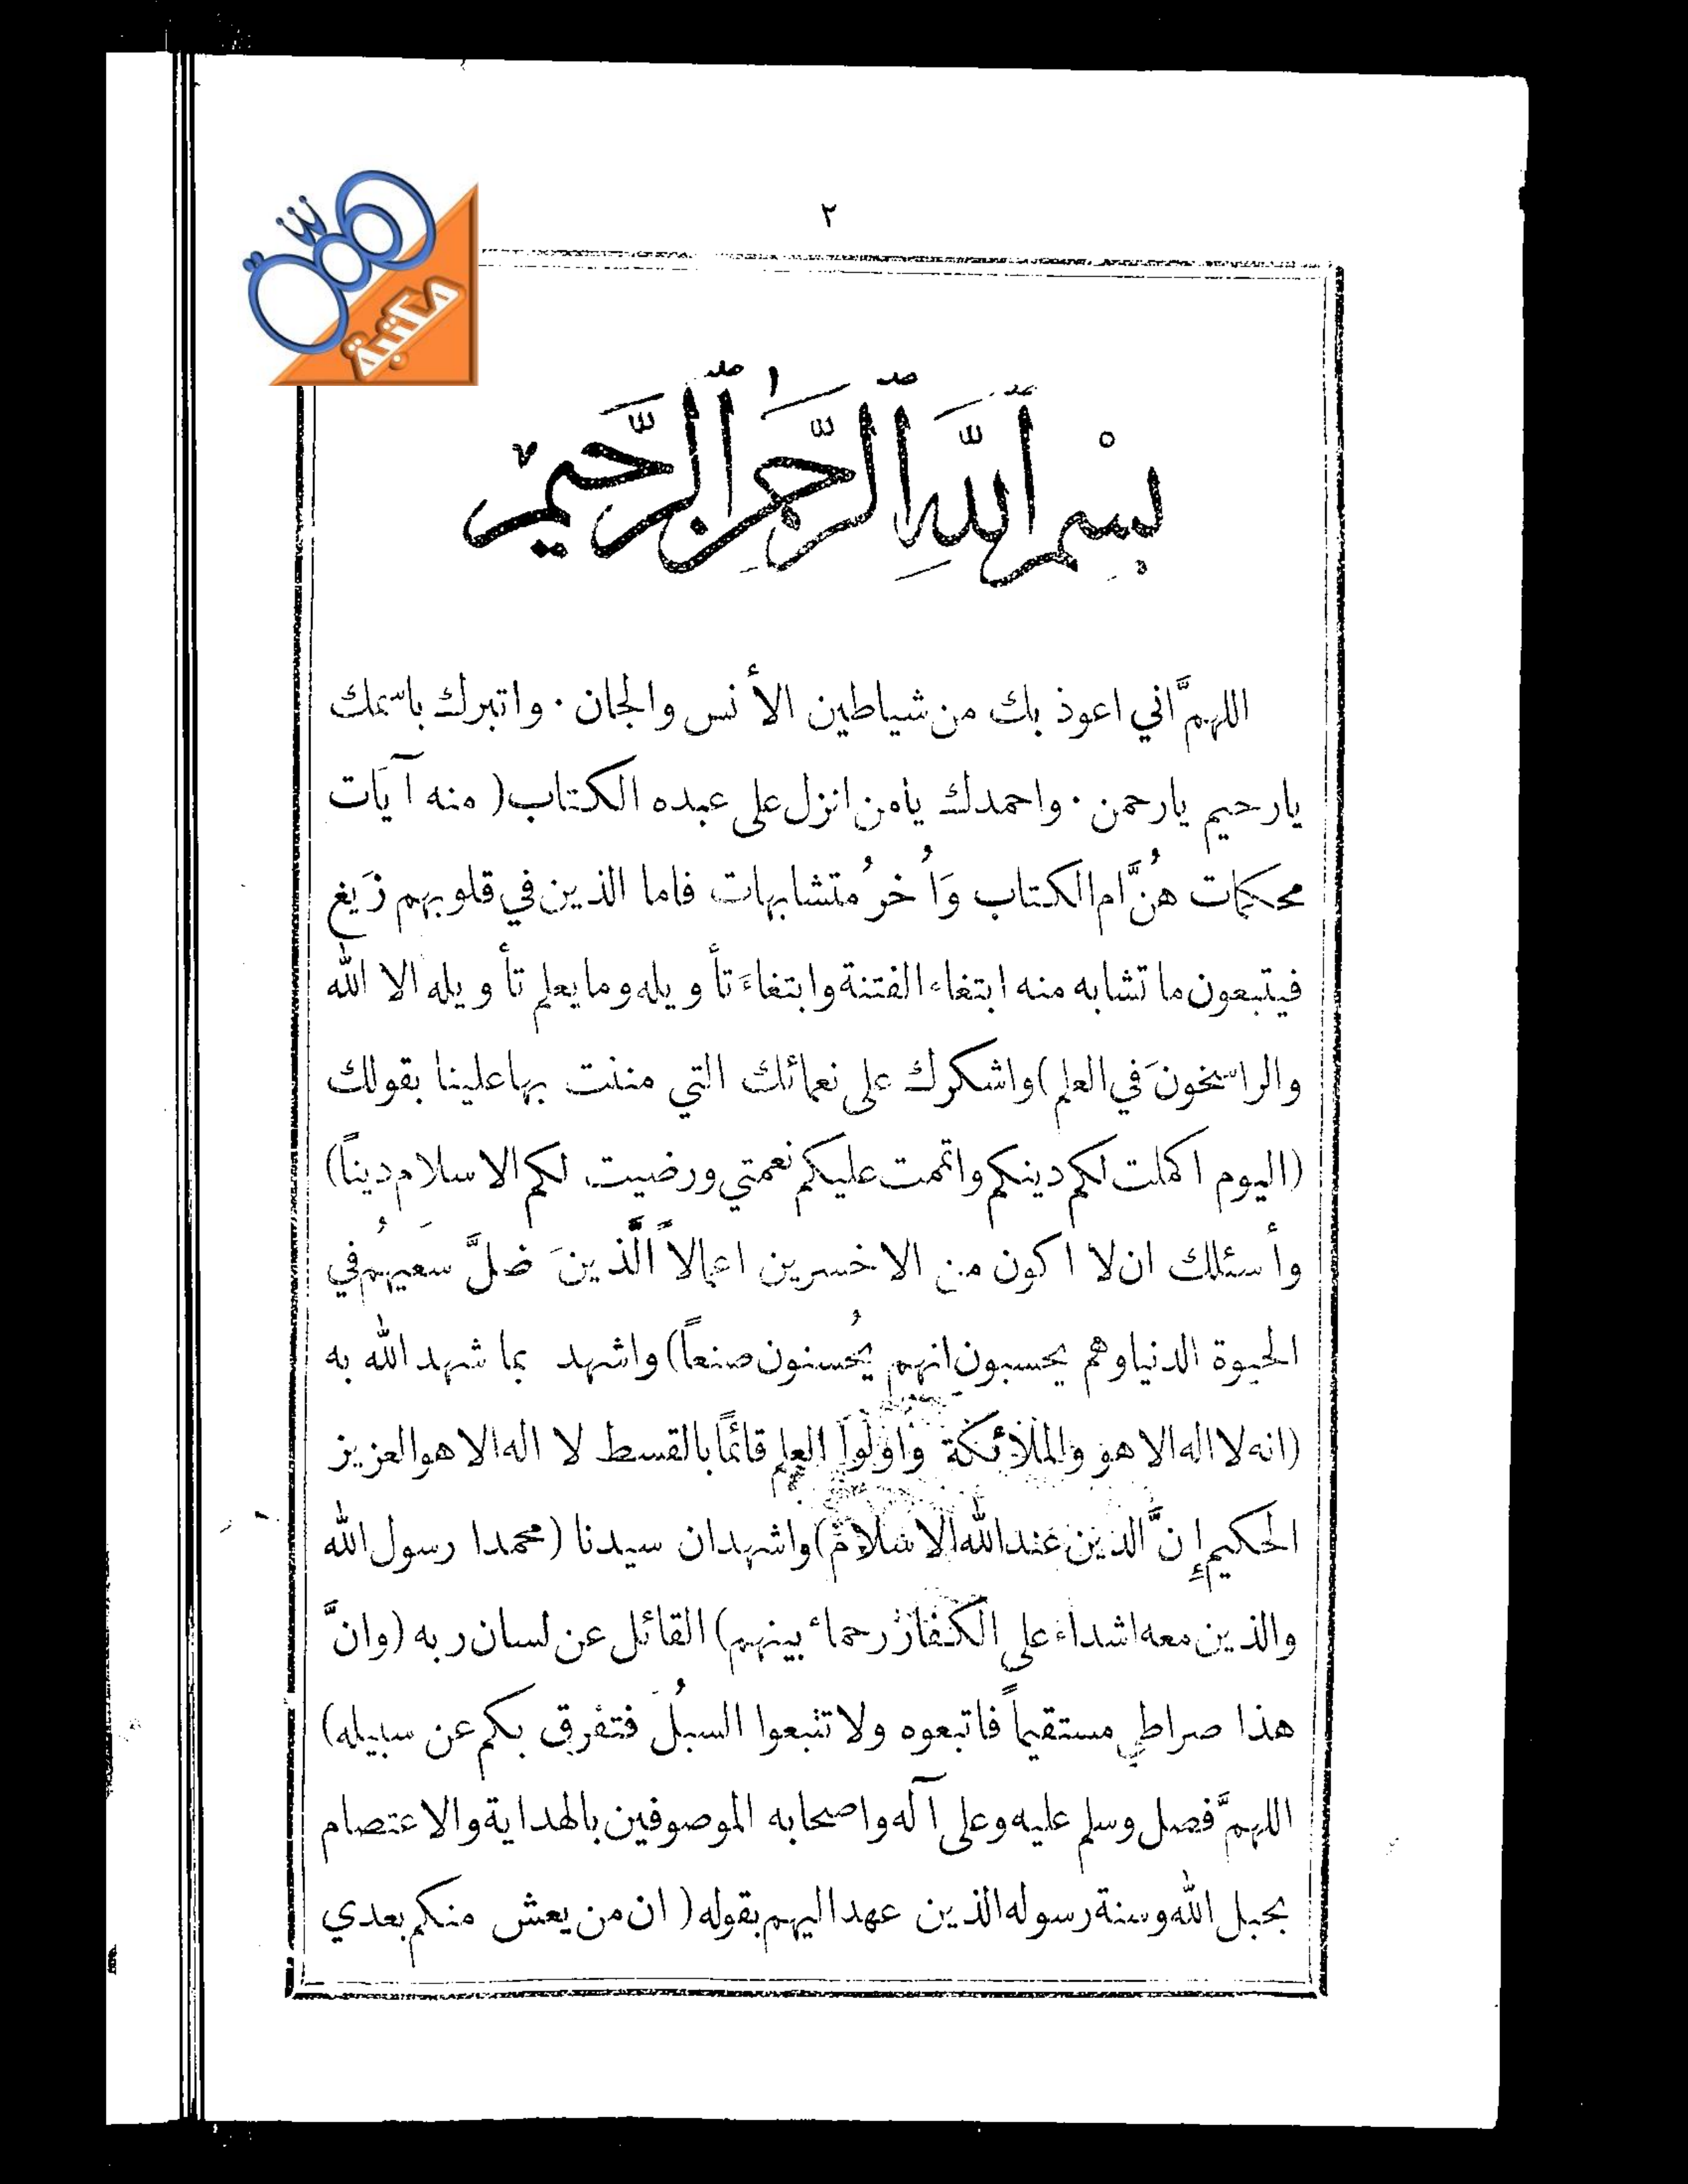 ٢
مكتبة
بِسْمِ ٱللَّهِ ٱلرَّحْمَٰنِ ٱلرَّحِيمِ
اللهمَّ اني اعوذ بك من شياطين الأنس والجان ٠ واتبرك باسمك
يارحيم يارحمن ٠ واحمدك يامن انزل على عبده الكتاب ( منه آيَات
محكمات هُنَّ ام الكتاب وَاُخرُ متشابهات فاما الذين في قلوبهم زَيغ
فيتبعون ما تشابه منه ابتغاء الفتنة وابتغاءَ تأويله وما يعلم تأويله الا الله
والراسخونَ في العلم) واشكرك على نعمائك التي مننت بها علينا بقولك
(اليوم اكملت لكم دينكم واتممت عليكم نعمتي ورضيت لكم الاسلام ديناً)
وأسئلك ان لا اكون من الاخسرين اعمالاً الَّذينَ ضلَّ سعَيهُم في
الحيوة الدنيا وهم يحسبون انهم يُحسنون صنعاً) واشهد بما شهد الله به
(انه لا اله الا هو والملائكة واولوا العلم قائمًا بالقسط لا اله الا هو العزيز
الحكيم إنَّ الدين عند الله الاسلام) واشهد ان سيدنا (محمدا رسول الله
والذين معه اشداء على الكفار رحماء بينهم) القائل عن لسان ربه (وانَّ
هذا صراطي مستقيماً فاتبعوه ولا تتبعوا السبُلَ فتفرق بكم عن سبيله)
اللهمَّ فصل وسلم عليه وعلى آله واصحابه الموصوفين بالهداية والاعتصام
بحبل الله وسنة رسوله الذين عهد اليهم بقوله ( ان من يعش منكم بعدي